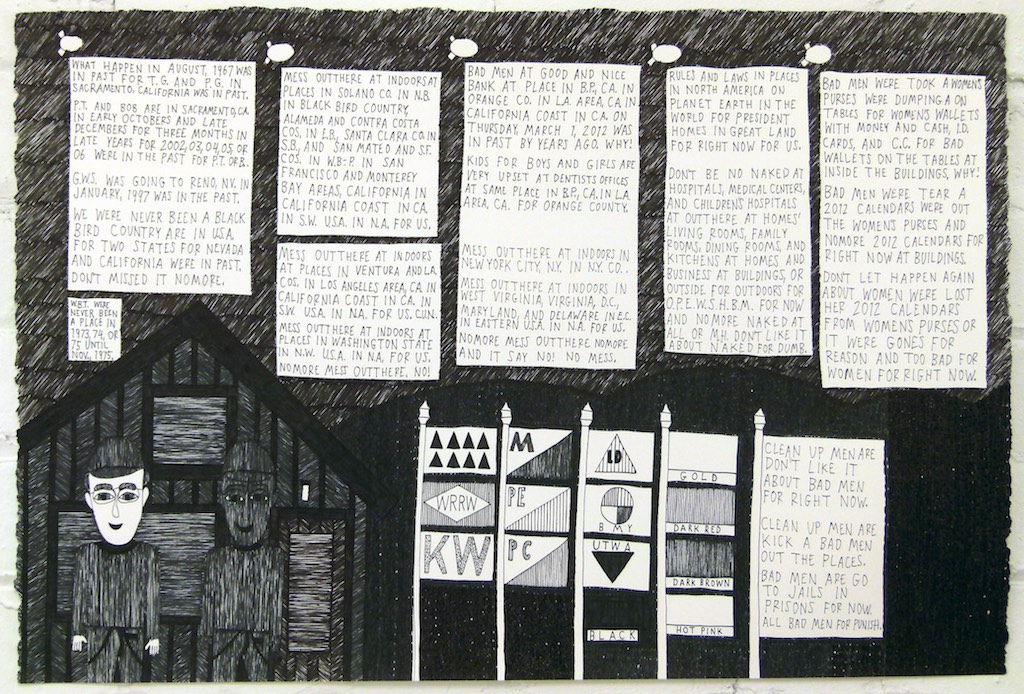 WHAT HAPPEN IN AUGUST, 1967 WAS
IN PAST FOR T.G. AND P.G. IN
SACRAMENTO, CALIFORNIA WAS IN PAST.
P.T. AND BOB ARE IN SACRAMENTO, CA.
IN EARLY OCTOBERS AND LATE
DECEMBERS FOR THREE MONTHS IN
LATE YEARS FOR 2002, 03, 04, 05, OR
06 WERE IN THE PAST FOR P.T. OR B..
G.W.S. WAS GOING TO RENO, NV. IN
JANUARY, 1997 WAS IN THE PAST.
WE WERE NEVER BEEN A BLACK
BIRD COUNTRY ARE IN U.S.A.
FOR TWO STATES FOR NEVADA
AND CALIFORNIA WERE IN PAST.
DON'T MISSED IT NOMORE.
W.B.T. WERE
NEVER BEEN
A PLACE IN
1973, 74, OR
75 UNTIL
NOV., 1975.
MESS OUTTHERE AT INDOORS AT
PLACES IN SOLANO CO. IN N.B.
IN BLACK BIRD COUNTRY,
ALAMEDA AND CONTRA COSTA
COS. IN E.B., SANTA CLARA CO. IN
S.B., AND SAN MATEO AND S.F.
COS. IN W.B-P. IN SAN
FRANCISCO AND MONTEREY
BAY AREAS, CALIFORNIA IN
CALIFORNIA COAST IN CA.
IN S.W. U.S.A. IN N.A. FOR US.
MESS OUTTHERE AT INDOORS
AT PLACES IN VENTURA AND L.A.
COS. IN LOS ANGELES AREA, CA. IN
CALIFORNIA COAST IN CA. IN
S.W. U.S.A. IN N.A. FOR US, C.U.N.
MESS OUTTHERE AT INDOORS AT
PLACES IN WASHINGTON STATE
IN N.W. U.S.A. IN N.A. FOR US.
NOMORE MESS OUTTHERE, NO!
BAD MEN AT GOOD AND NICE
BANK AT PLACE IN B.P., CA. IN
ORANGE CO. IN L.A. AREA, CA. IN
CALIFORNIA COAST IN CA. ON
THURSDAY, MARCH 1, 2012 WAS
IN PAST BY YEARS AGO. WHY!
KIDS FOR BOYS AND GIRLS ARE
VERY UPSET AT DENTISTS OFFICES
AT SAME PLACE IN B.P., CA. IN L.A.
AREA, CA. FOR ORANGE COUNTY.
MESS OUTTHERE AT INDOORS IN
NEW YORK CITY, N.Y. IN N.Y. CO..
MESS OUTTHERE AT INDOORS IN
WEST VIRGINIA, VIRGINIA, D.C.,
MARYLAND, AND DELAWARE IN E.C.
IN EASTERN U.S.A. IN N.A. FOR US.
NOMORE MESS OUTTHERE NOMORE
AND IT SAY NO! NO MESS.
RULES AND LAWS IN PLACES
IN NORTH AMERICA ON
PLANET EARTH IN THE
WORLD FOR PRESIDENT
HOMES IN GREAT LAND
FOR RIGHT NOW FOR US.
DON'T BE NO NAKED AT
HOSPITALS, MEDICAL CENTERS,
AND CHILDRENS HOSPITALS
AT OUTTHERE AT HOMES'
LIVING ROOMS, FAMILY
ROOMS, DINING ROOMS, AND
KITCHENS AT HOMES AND
BUSINESS AT BUILDINGS, OR
OUTSIDE FOR OUTDOORS FOR
O.P.E.W.S.H.B.M. FOR NOW
AND NOMORE NAKED AT
ALL OR M.H. DON'T LIKE IT
ABOUT NAKED FOR DUMB.
BAD MEN WERE TOOK A WOMENS
PURSES WERE DUMPING A ON
TABLES FOR WOMENS WALLETS
WITH MONEY AND CASH, I.D.
CARDS, AND C.C. FOR BAD
WALLETS ON THE TABLES AT
INSIDE THE BUILDINGS, WHY!
BAD MEN WERE TEAR A
2012 CALENDARS WERE OUT
THE WOMENS PURSES AND
NOMORE 2012 CALENDARS FOR
RIGHT NOW AT BUILDINGS.
DON'T LET HAPPEN AGAIN
ABOUT WOMEN WERE LOST
HER 2012 CALENDARS
FROM WOMENS PURSES OR
IT WERE GONES FOR
REASON AND TOO BAD FOR
WOMEN FOR RIGHT NOW.
WRRW
KW
M
PE
PC
LD
B M Y
UTWA
BLACK
GOLD
DARK RED
DARK BROWN
HOT PINK
CLEAN UP MEN ARE
DON'T LIKE IT
ABOUT BAD MEN
FOR RIGHT NOW.
CLEAN UP MEN ARE
KICK A BAD MEN
OUT THE PLACES.
BAD MEN ARE GO
TO JAILS IN
PRISONS FOR NOW.
ALL BAD MEN FOR PUNISH.